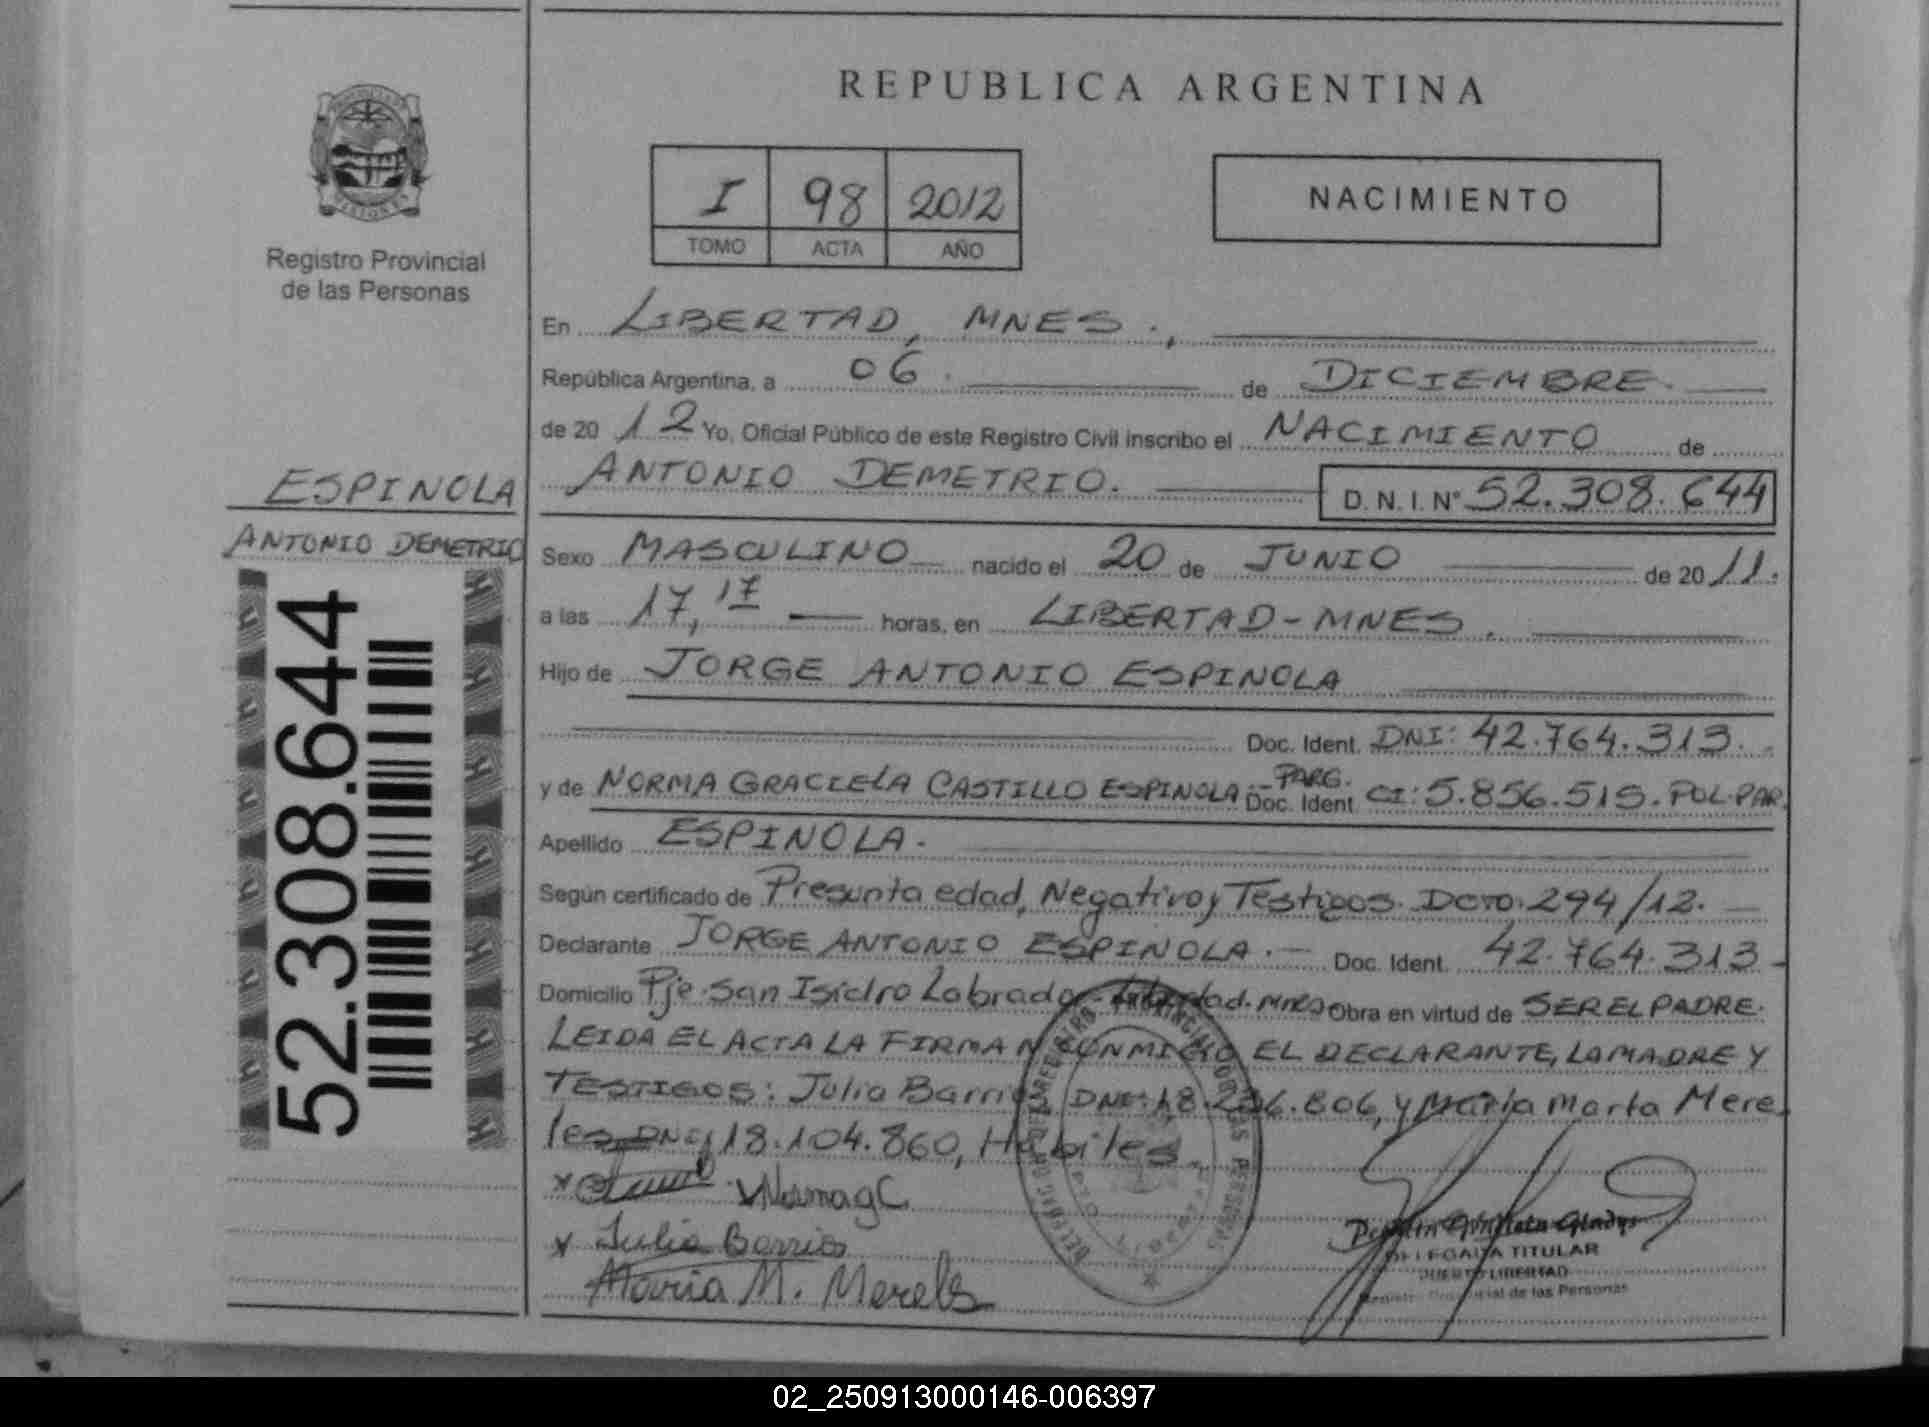 REPUBLICA ARGENTINA
PROVINCIA DE MISIONES
Registro Provincial
de las Personas
I 98 2012
TOMO ACTA AÑO
NACIMIENTO
En LIBERTAD, MNES.,
República Argentina, a 06. de DICIEMBRE
de 20 12 Yo, Oficial Público de este Registro Civil inscribo el NACIMIENTO de
ANTONIO DEMETRIO. D. N. I. Nº 52.308.644
ESPINOLA
ANTONIO DEMETRIO
52.308.644
Sexo MASCULINO nacido el 20 de JUNIO de 20 11.
a las 17,17 horas, en LIBERTAD-MNES.
Hijo de JORGE ANTONIO ESPINOLA
Doc. Ident. DNI: 42.764.313.
y de NORMA GRACIELA CASTILLO ESPINOLA.- PARG. Doc. Ident CI: 5.856.515. POL.PAR.
Apellido ESPINOLA.
Según certificado de Presunta edad, Negativo y Testigos. Dcto. 294/12.
Declarante JORGE ANTONIO ESPINOLA. Doc. Ident. 42.764.313
Domicilio Pje. San Isidro Labrador-Libertad. Mnes Obra en virtud de SER EL PADRE.
LEIDA EL ACTA LA FIRMAN CONMIGO EL DECLARANTE, LA MADRE Y
TESTIGOS: Julia Barrios DNI: 18. .806, y Maria Marta Mere
les DNI 18.104.860, Habiles
Norma g C
Julia Barrios
Maria M. Mereles
Gladys
DELEGADA TITULAR
PUERTO LIBERTAD
Registro Provincial de las Personas
02_250913000146-006397